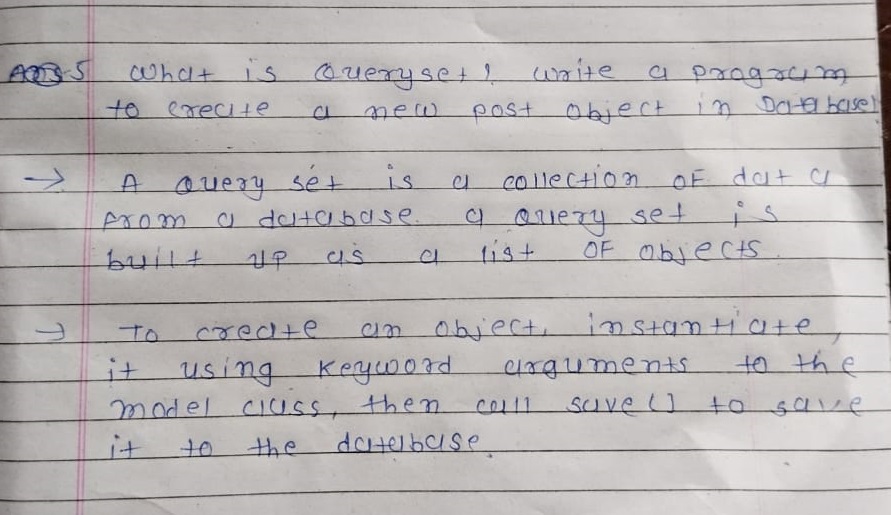 Ans-5 What is Queryset? write a program
to create a new post object in Database?
→ A Query set is a collection OF data
From a database. a Query set is
built up as a list OF objects.
→ To create an object, instantiate,
it using keyword arguments to the
model class, then call save() to save
it to the database.